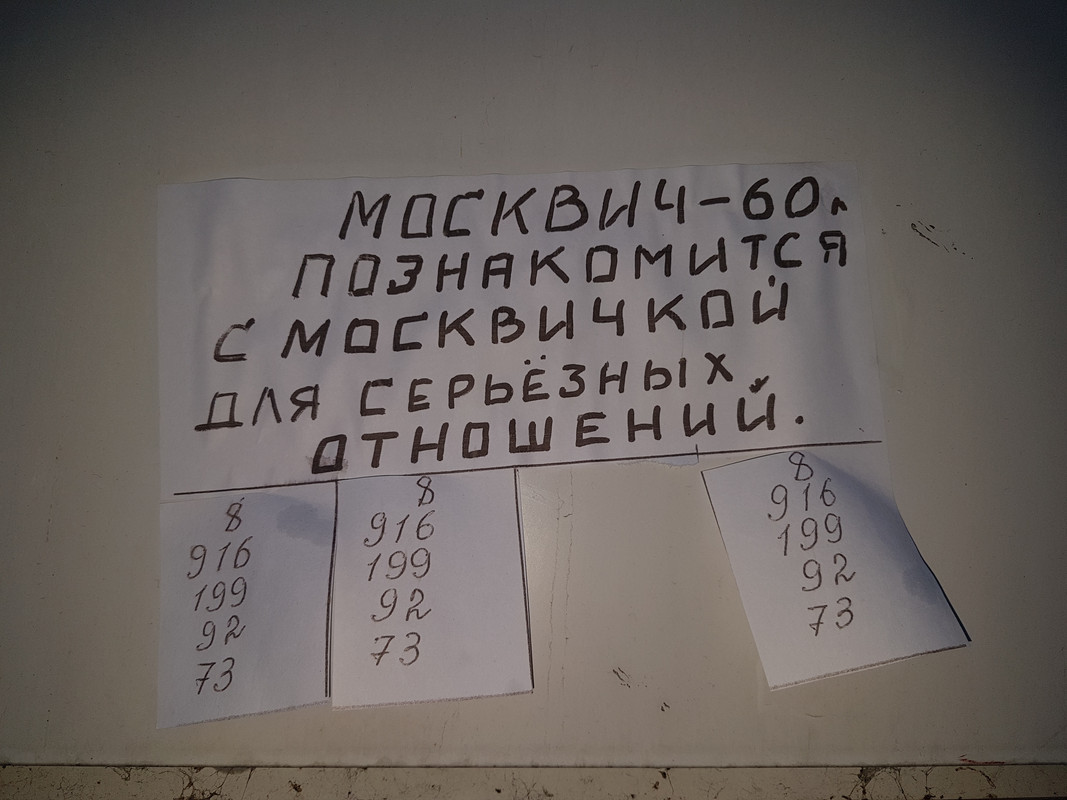 МОСКВИЧ-60л
ПОЗНАКОМИТСЯ
С МОСКВИЧКОЙ
ДЛЯ СЕРЬЁЗНЫХ
ОТНОШЕНИЙ.
8
916
199
92
73
8
916
199
92
73
8
916
199
92
73